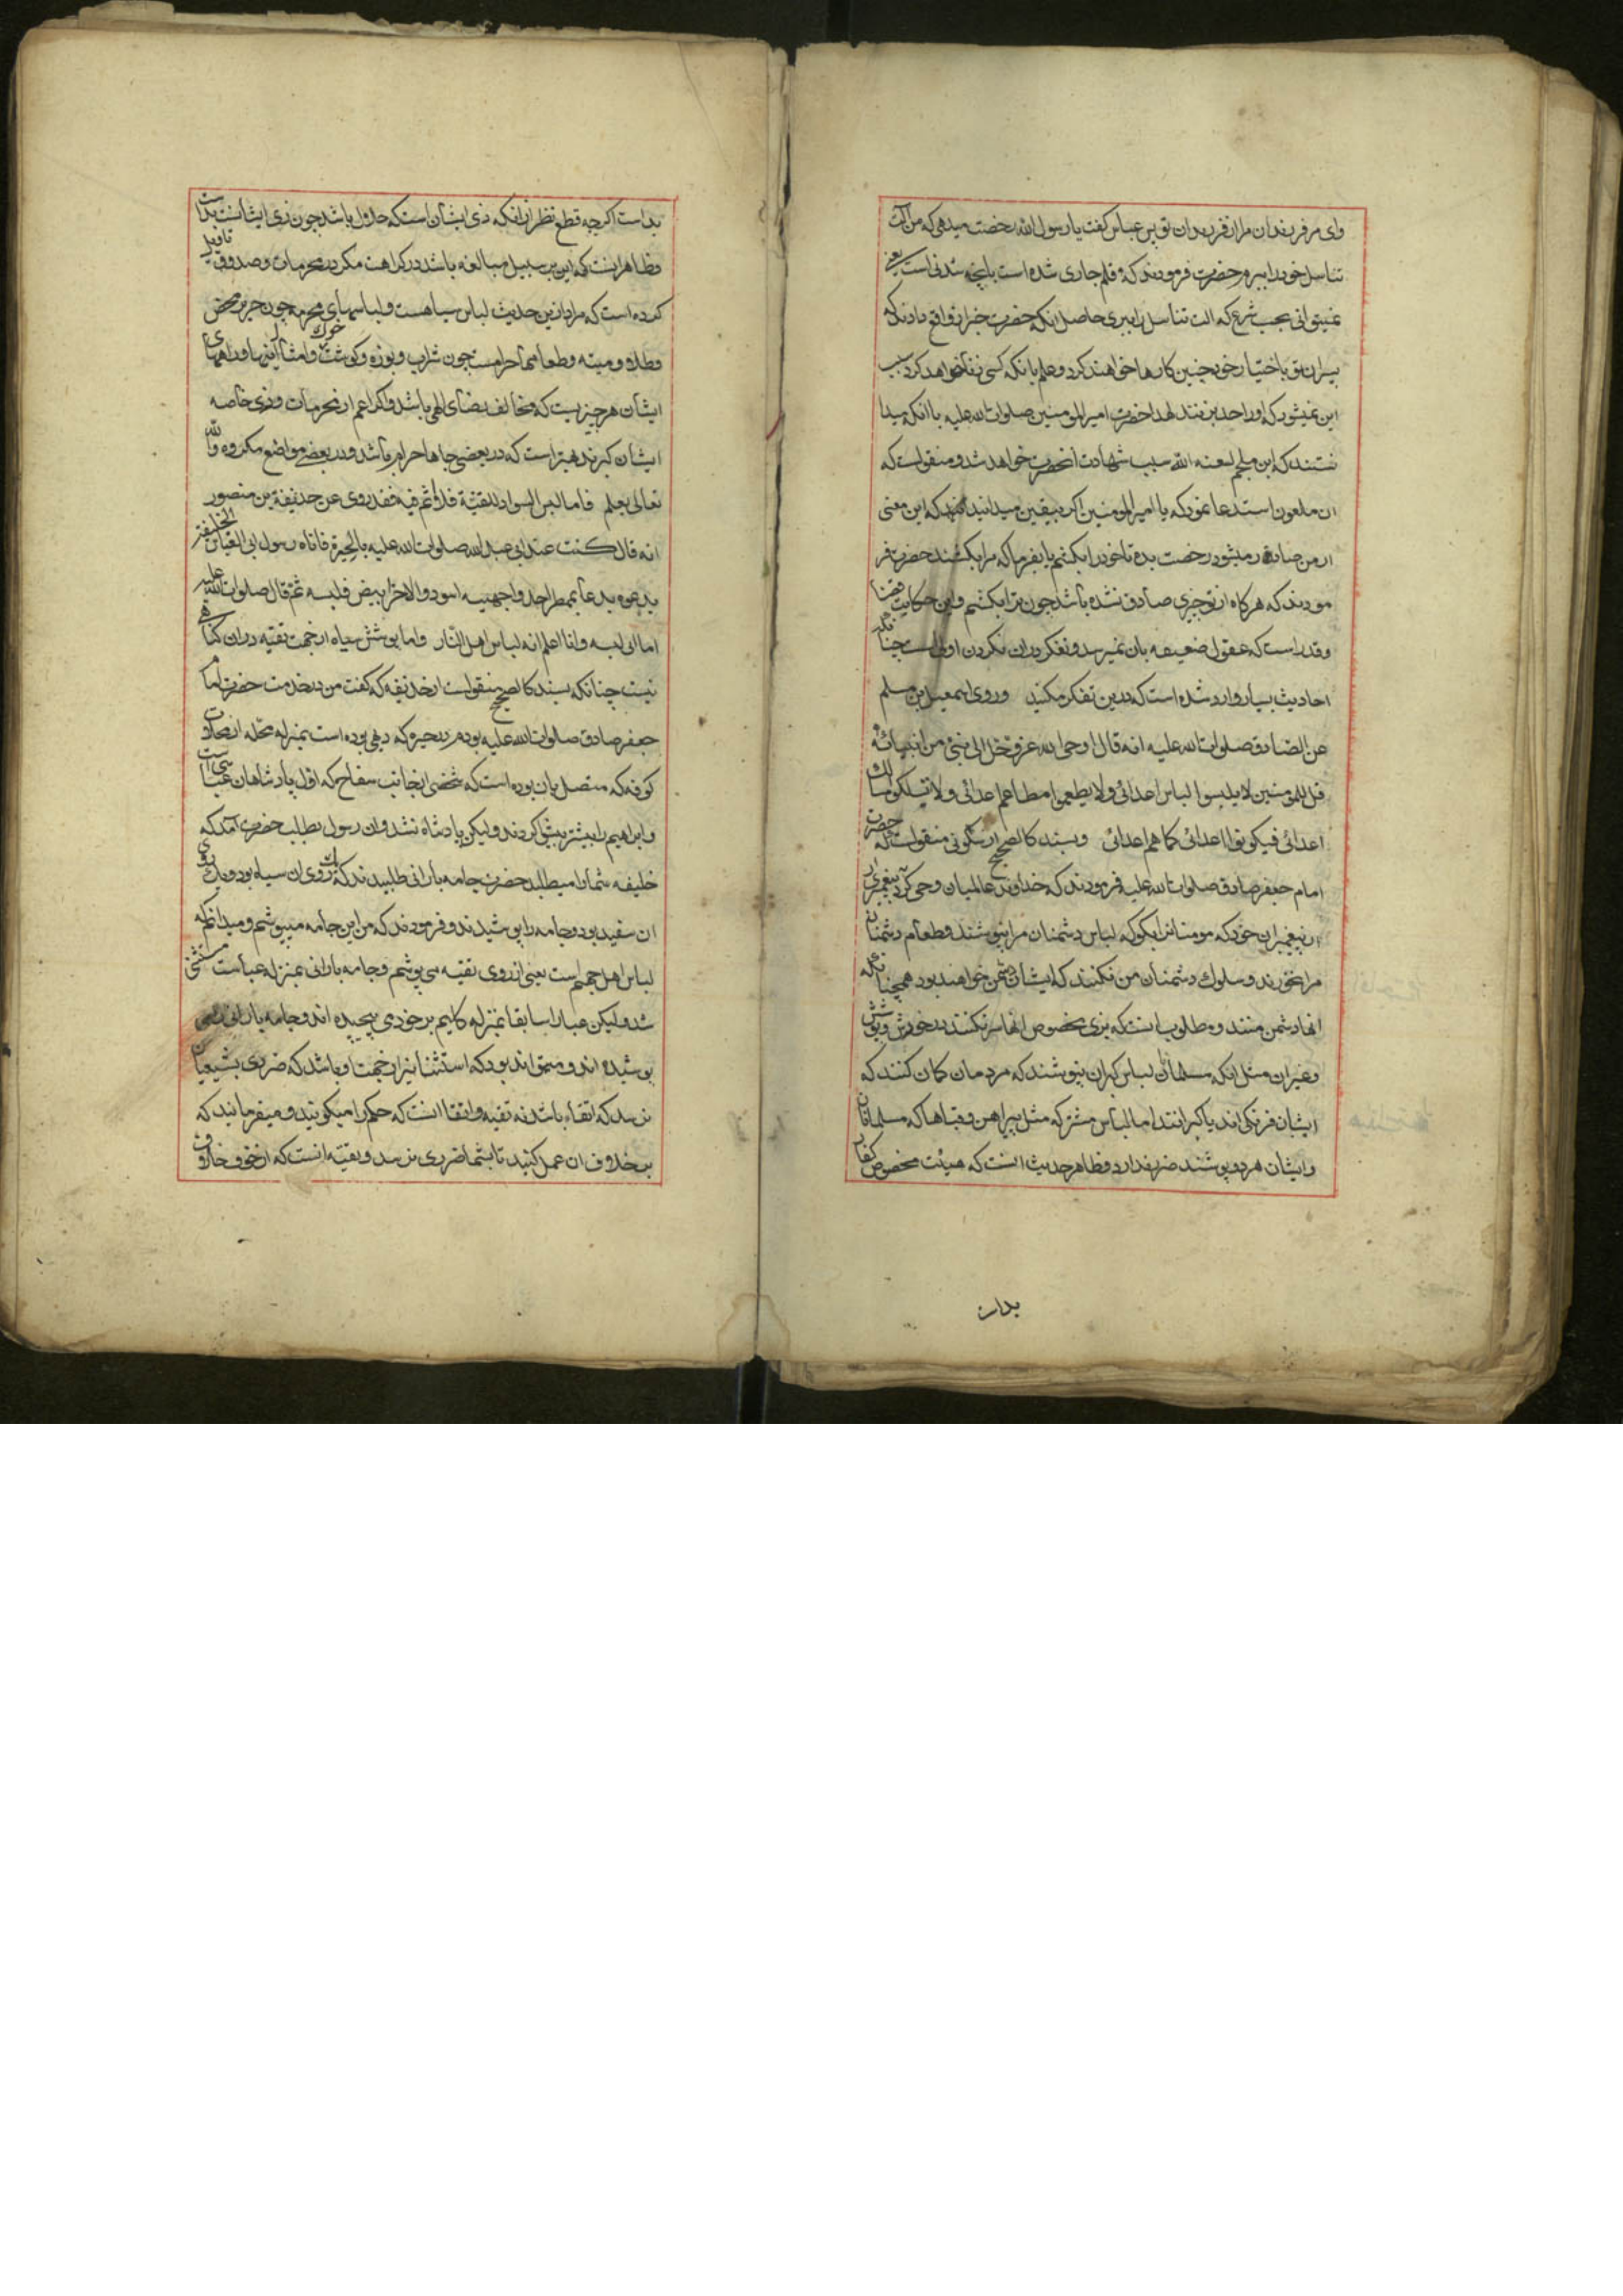 وای مر فرزندان مرا از فرزندان تو پس عباس کفت یا رسول الله رخصت میدهی که من آلت
تناسل خود را ببرم حضرت فرمودند که قلم جاری شده است بانچه شدنی است یعنی
نمیتوانی بحسب شرع که الت تناسل را ببری حاصل آنکه حضرت خبر از واقع دادند که
پسران تو باختیار خود چنین کارها خواهند کرد و علم بانکه کسی زنا خواهد کرد سبب
این نمیشود که او را حد بزنند لهذا حضرت امیر المومنین صلوات الله علیه با آنکه میدا
نستند که ابن ملجم لعنه الله سبب شهادت آنحضرت خواهد شد و منقولست که
ان ملعون استدعا نمود که یا امیر المومنین اکر بیقین میدانید که این معنی
از من صادر میشود رخصت بده تا خود را بکشم یا بفرما که مرا بکشند حضرت فر
مودند که هرکاه از تو چیزی صادق نشده باشد چون ترا بکشیم و این حکایت قضا
و قدر است که عقول ضعیفه بان نمیرسد و تفکر در ان نکردن اولی است چنانکه
احادیث بسیار وارد شده است که درین تفکر مکنید وروی اسمعیل بن مسلم
عن الصادق صلوات الله علیه انه قال اوحی الله عز وجل الی نبی من انبیائه
قل للمومنین لا یلبسوا لباس اعدائی ولا یطعموا مطاعم اعدائی ولا یسلکوا مسالک
اعدائی فیکونوا اعدائی کما هم اعدائی وبسند کالصحیح از سکونی منقولست که حضرت
امام جعفر صادق صلوات الله علیه فرمودند که خداوند عالمیان وحی کرد به پیغمبری
از پیغمبران خود که مومنانرا بکو که لباس دشمنان مرا نپوشند و طعام دشمنان
مرا نخورند و سلوک دشمنان من نکنند که ایشان دشمن خواهند بود همچنانکه
انها دشمن منند و مطلوب انست که بزی مخصوص انها سر نکنند در خورش و پوشش
و غیر ان مثل انکه مسلمانان لباس کبران نپوشند که مردمان کمان کنند که
ایشان فرنکی اند یا کبرانند اما لباس مشترکه مثل پیراهن و قباها که مسلمانان
و ایشان هر دو پوشند ضرر ندارد و ظاهر حدیث انست که هیئت مخصوص کفار
بدان
بد است اکرچه قطع نظر از انکه زی ایشان است که حلال باشد چون زی ایشانست بد است
و ظاهرا اینست که این بر سبیل مبالغه باشد در کراهت مکر در محرمات و صدوق تاویل
کرده است که مراد ازین حدیث لباس سیاهست و لباسهای محرمه چون حریر محض
و طلا و میته و طعامهاء حرامست چون شراب و بوزه و کوشت خوک و امثال اینها و راههای
ایشان هر چیزیست که مخالف رضای الهی باشد و اکر اعم از محرمات و زی خاصه
ایشان کیرند بهتر است که در بعضی جاها حرام باشد و در بعضی مواضع مکروه والله
تعالی یعلم فاما لبس السواد للتقیة فلا اثم فیه فقد روی عن حذیفة بن منصور
انه قال کنت عند ابی عبد الله صلوات الله علیه بالحیرة فاتاه رسول ابی العباس الخلیفة
یدعوه فدعا بممطر احد وجهیه اسود والاخر ابیض فلبسه ثم قال صلوات الله علیه
اما انی البسه وانا اعلم انه لباس اهل النار واما پوشش سیاه از جهت تقیه در ان کناهی
نیست چنانکه بسند کالصحیح منقولست از حذیفه که کفت من در خدمت حضرت امام
جعفر صادق صلوات الله علیه بودم در حیره که دهی بوده است بمنزله محله از محلات
کوفه که متصل بان بوده است که شخصی از جانب سفاح که اول پادشاهان بنی عباس است
و ابراهیم را پیشتر پیشوا کردند ولیکن پادشاه نشد و ان رسول بطلب حضرت آمد که
خلیفه شما را میطلبد حضرت جامه بارانی طلبیدند که یک روی ان سیاه بود و یک روی
ان سفید بود و جامه را پوشیدند و فرمودند که من این جامه میپوشم و میدانم که
لباس اهل جهنم است یعنی از روی تقیه می پوشم و جامه بارانی بمنزله عباست مستثنی
شد ولیکن عبا را سابقا بمنزله کلیم بر خود می پیچیده اند و جامه بارانی را می
پوشیده اند و میتواند بود که استثنا نیز از جهت او باشد که ضرری بشیعیان
نرسد که اتقاء باشد نه تقیه و اتقا انست که حکم را میکویند و میفرمایند که
بر خلاف ان عمل کنید تا بشما ضرری نرسد و تقیه انست که از خوف خلاف